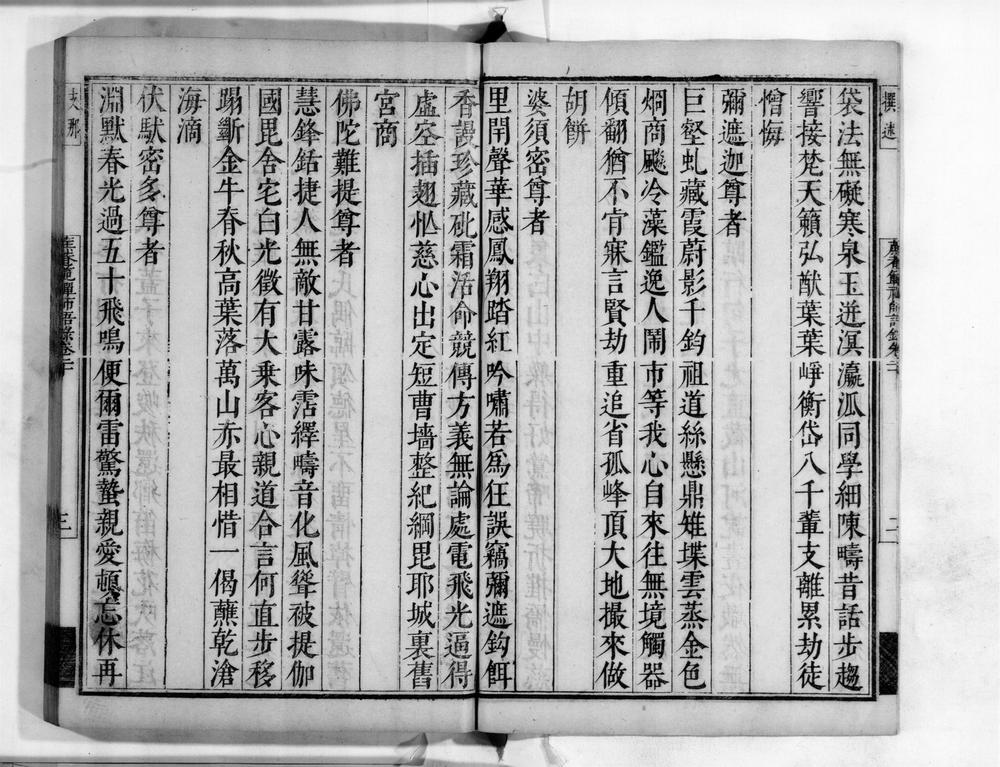 撰述
二
袋法無礙寒泉玉迸溟瀛泒同學細陳疇昔話步趨
響接梵天籟弘猷葉葉崢衡岱八千輩支離累劫徒
憎悔
彌遮迦尊者
巨壑虬藏霞蔚影千鈞祖道絲懸鼎雉堞雲蒸金色
烱商飈冷藻鑑逸人鬧市等我心自來往無境觸器
傾翻猶不肯寐言賢劫重追省孤峰頂大地撮來做
胡餅
婆須密尊者
里閈聲華感鳳翔踏紅吟嘯若為狂誤竊彌遮鈎餌
香謾珍藏砒霜活命競傳方義無論處電飛光逼得
虛空插翅忙慈心出定短曹墻整紀綱毘耶城裏舊
宮商
佛陀難提尊者
慧鋒銛捷人無敵甘露味霑繹疇音化風聳被提伽
國毘舍宅白光徵有大乘客心親道合言何直步移
蹋斷金牛春秋高葉落萬山赤最相惜一偈蘸乾滄
海滴
伏馱密多尊者
淵默春光過五十飛鳴便爾雷驚蟄親愛頓忘休再
支那
三